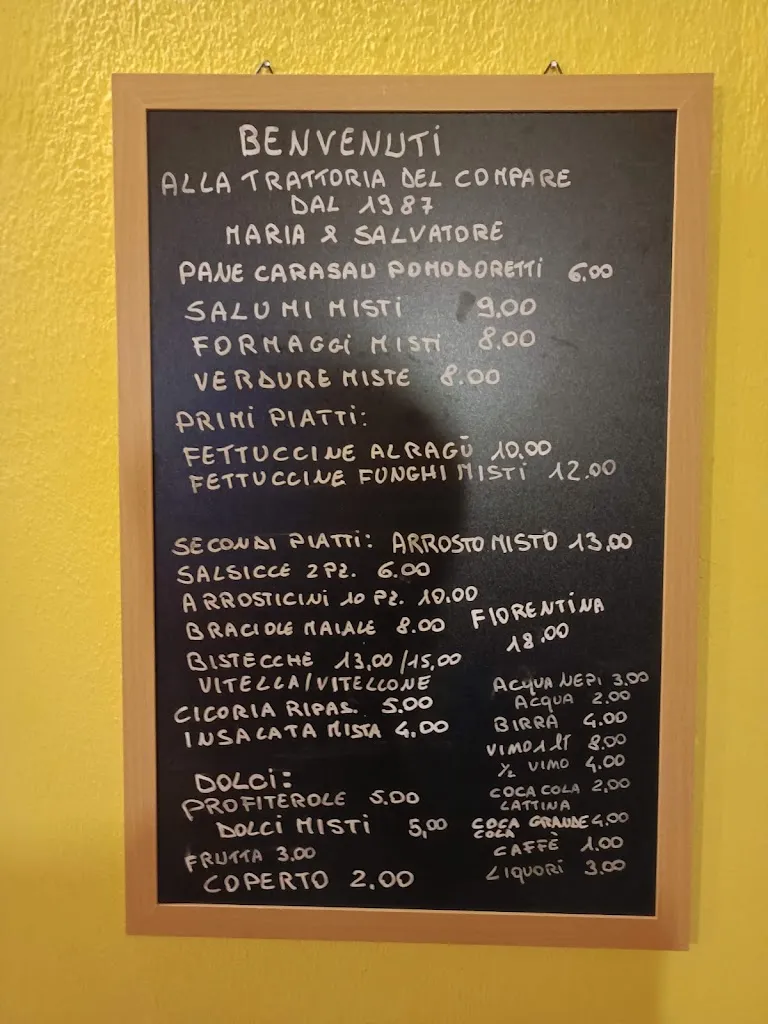 BENVENUTI
ALLA TRATTORIA DEL COMPARE
DAL 1987
MARIA & SALVATORE
PANE CARASAU POMODORETTI 6.00
SALUMI MISTI 9.00
FORMAGGI MISTI 8.00
VERDURE MISTE 8.00
PRIMI PIATTI:
FETTUCCINE AL RAGÙ 10.00
FETTUCCINE FUNGHI MISTI 12.00
SECONDI PIATTI: ARROSTO MISTO 13,00
SALSICCE 2 PZ. 6.00
ARROSTICINI 10 PZ. 10.00
BRACIOLE MAIALE 8.00
BISTECCHE 13,00/15,00
VITELLA/VITELLONE
CICORIA RIPAS. 5.00
INSALATA MISTA 4,00
FIORENTINA
18.00
DOLCI:
PROFITEROLE 5.00
DOLCI MISTI 5,00
FRUTTA 3.00
COPERTO 2.00
ACQUA NEPI 3.00
ACQUA 2.00
BIRRA 4.00
VIMO 1 lt 8.00
1/2 VIMO 4.00
COCA COLA 2,00
LATTINA
COCA GRANDE 4,00
COLA
CAFFÈ 1.00
LIQUORI 3.00